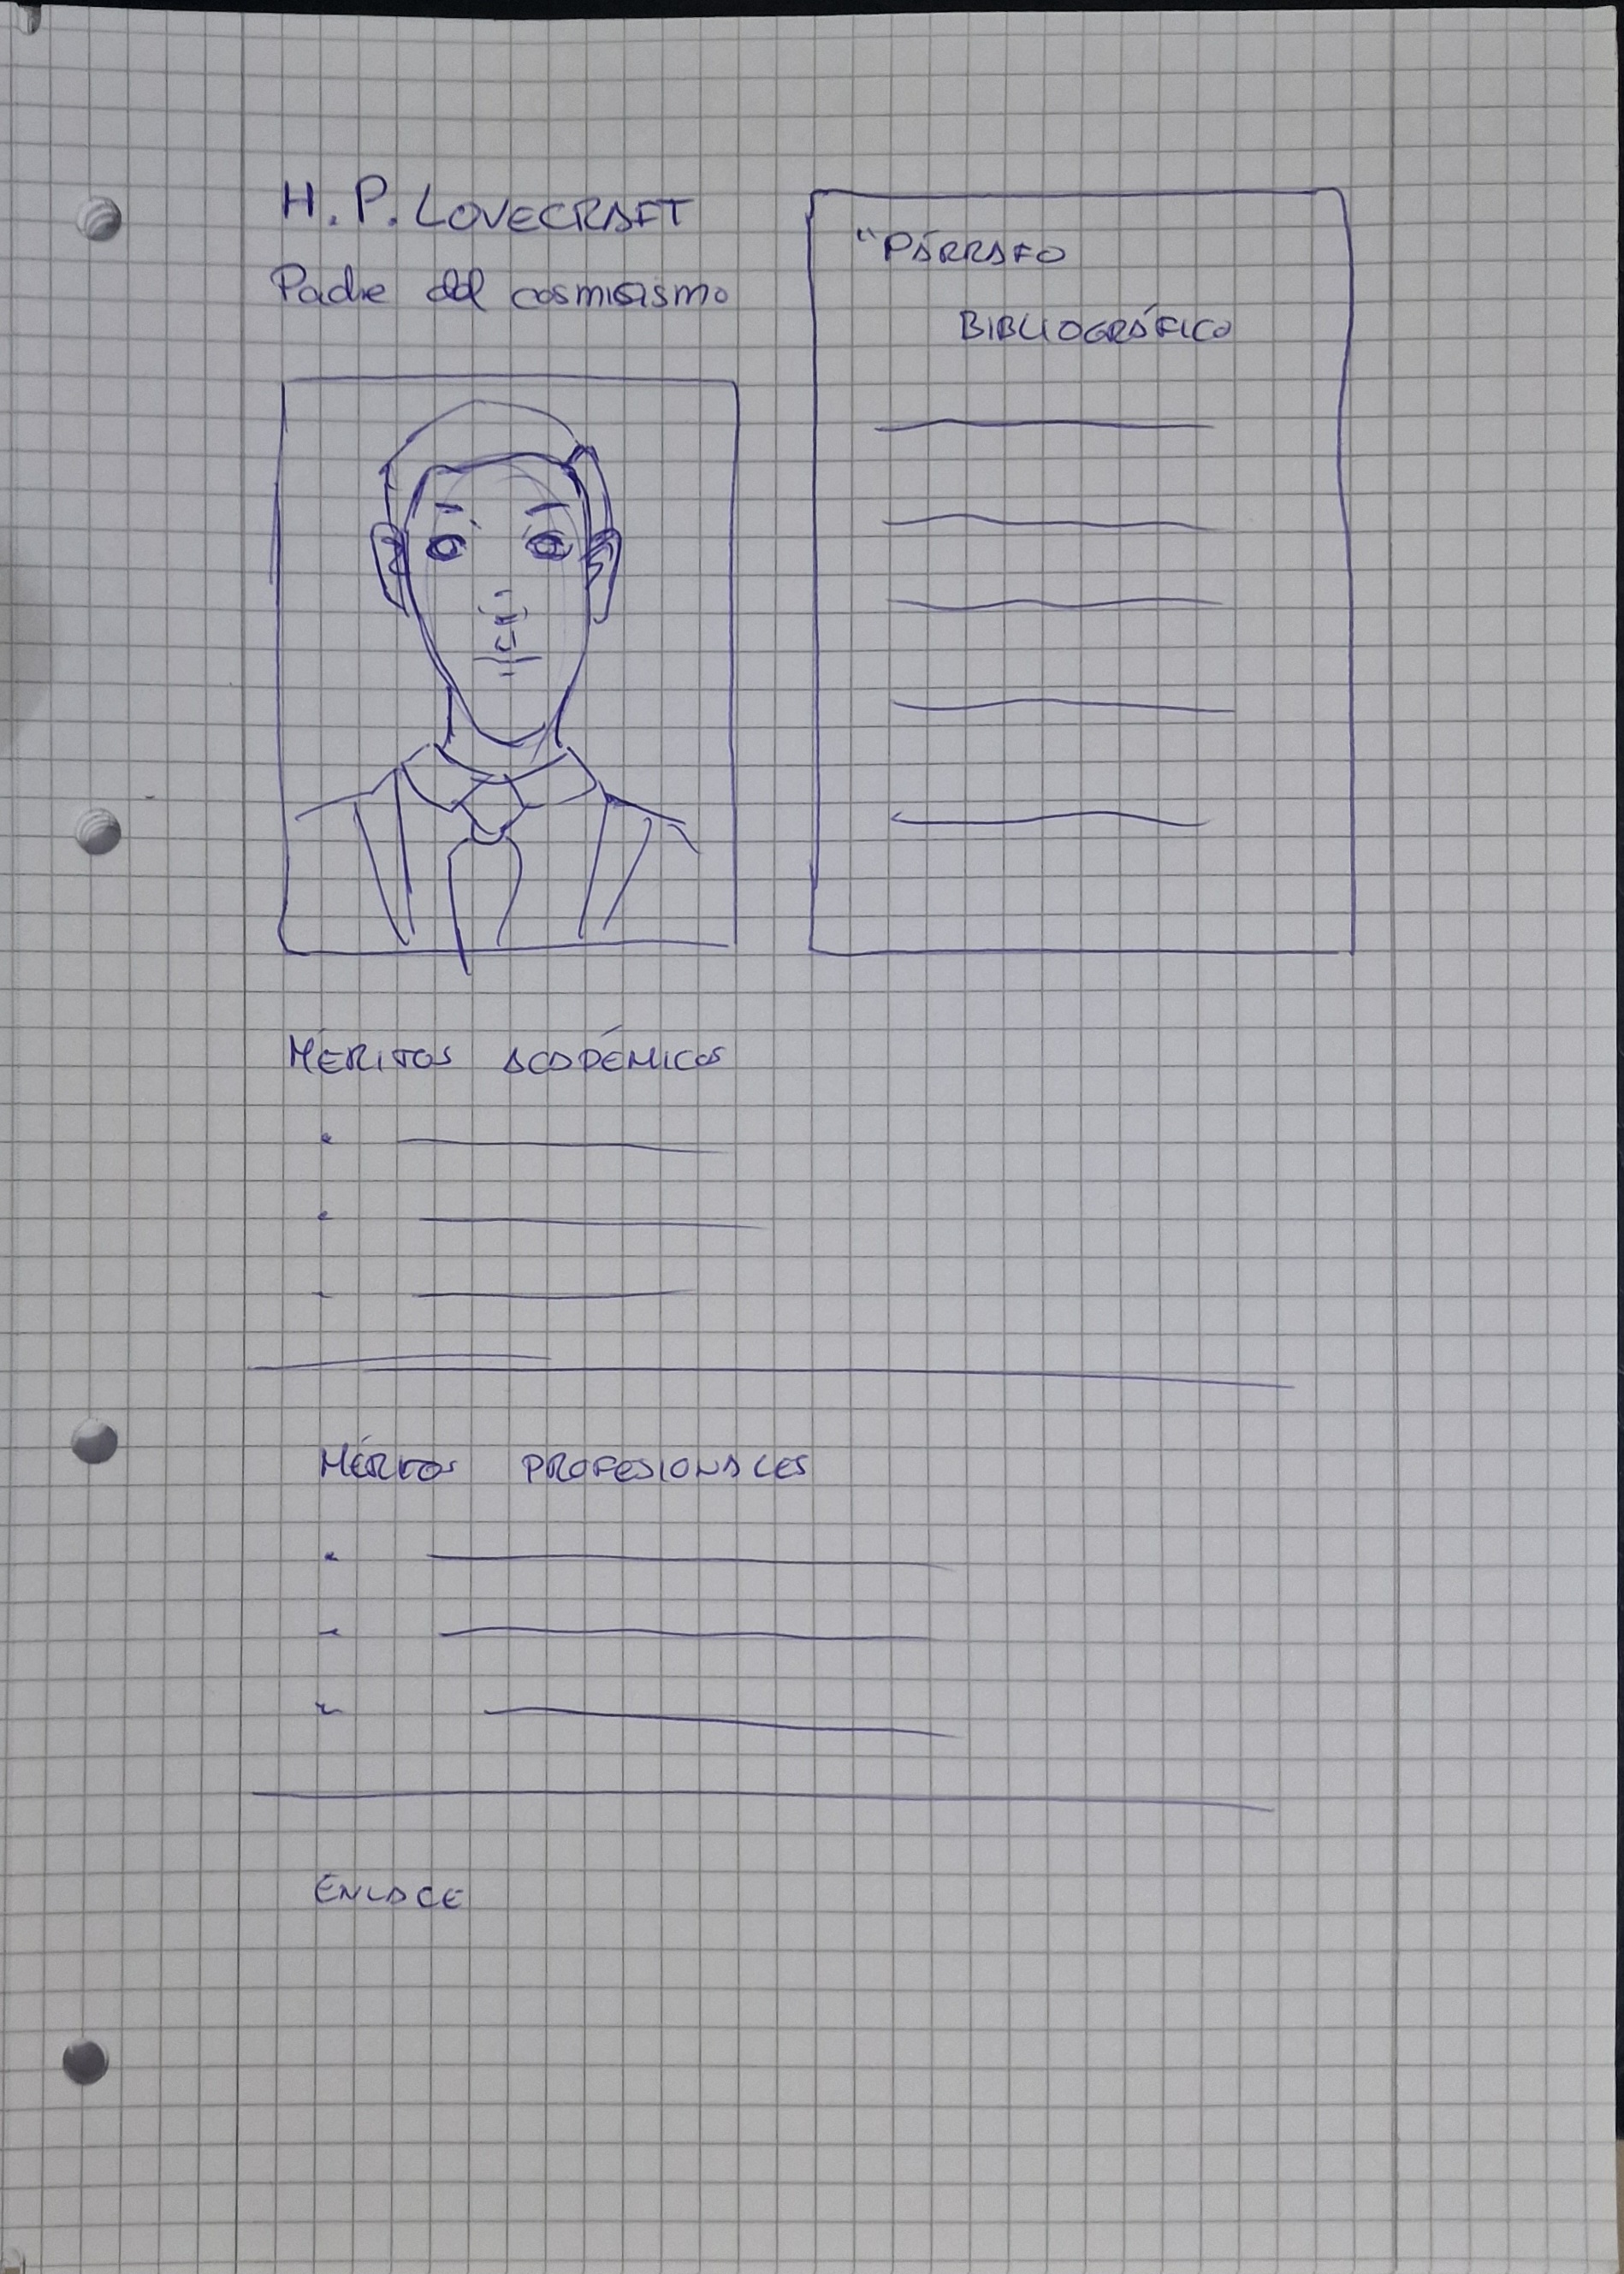 H. P. LOVECRAFT
Padre del cosmicismo
"PÁRRAFO
BIBLIOGRÁFICO
MÉRITOS ACADÉMICOS
MÉRITOS PROFESIONALES
ENLACE